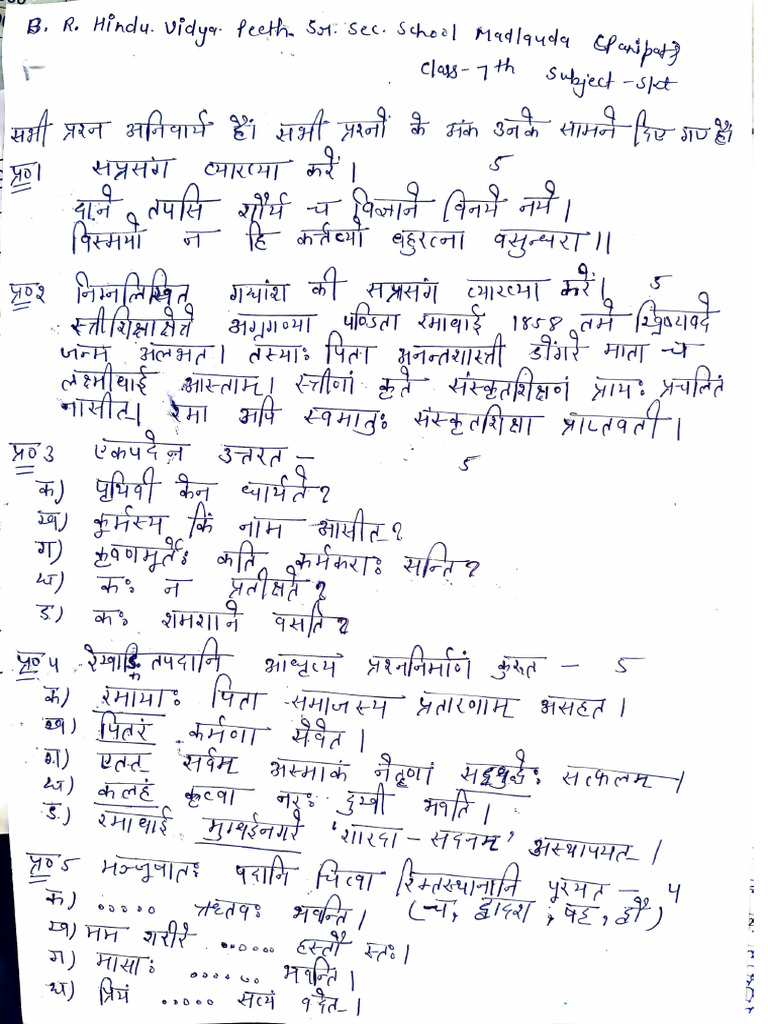 B. R. Hindu. Vidya. Peeth. Sr. Sec. School Madlauda (Panipat)
Class - 7th Subject - Skt
सभी प्रश्न अनिवार्य हैं। सभी प्रश्नों के अंक उनके सामने दिए गए हैं।
प्र०1 सप्रसंग व्याख्या करें। 5
दाने तपसि शौर्ये च विज्ञाने विनये नये।
विस्मयो न हि कर्त्तव्यो बहुरत्ना वसुन्धरा॥
प्र०2 निम्नलिखित गद्यांश की सप्रसंग व्याख्या करें। 5
स्त्रीशिक्षाक्षेत्रे अग्रगण्या पण्डिता रमाबाई 1858 तमे ख्रिष्टाब्दे
जन्म अलभत। तस्याः पिता अनन्तशास्त्री डोंगरे माता च
लक्ष्मीबाई आस्ताम्। स्त्रीणां कृते संस्कृतशिक्षणं प्रायः प्रचलितं
नासीत्। रमा अपि स्वमातुः संस्कृतशिक्षा प्राप्तवती।
प्र०3 एकपदेन उत्तरत - 5
क) पृथिवी केन धार्यते?
ख) कूर्मस्य किं नाम आसीत्?
ग) कृष्णमूर्तेः कति कर्मकराः सन्ति?
घ) कः न प्रतीक्षते?
ङ) कः शमशाने वसति?
प्र०4 रेखाङ्कितपदानि आधृत्य प्रश्ननिर्माणं कुरुत - 5
क) रमायाः पिता समाजस्य प्रतारणाम् असहत।
ख) पितरं कर्मणा सेवेत।
ग) एतत् सर्वम् अस्माकं नेतृणां सद्बुद्धेः सत्फलम्।
घ) कलहं कृत्वा नरः दुःखी भवति।
ङ) रमाबाई मुम्बईनगरे 'शारदा - सदनम्' अस्थापयत्।
प्र०5 मञ्जूषातः पदानि चित्वा रिक्तस्थानानि पूरयत - 4
क) ..... ऋतवः भवन्ति। (च, द्वादश, षट्, द्वौ)
ख) मम शरीरे ...... हस्तौ स्तः।
ग) मासाः ...... भवन्ति।
घ) प्रियं ..... सत्यं वदेत्।